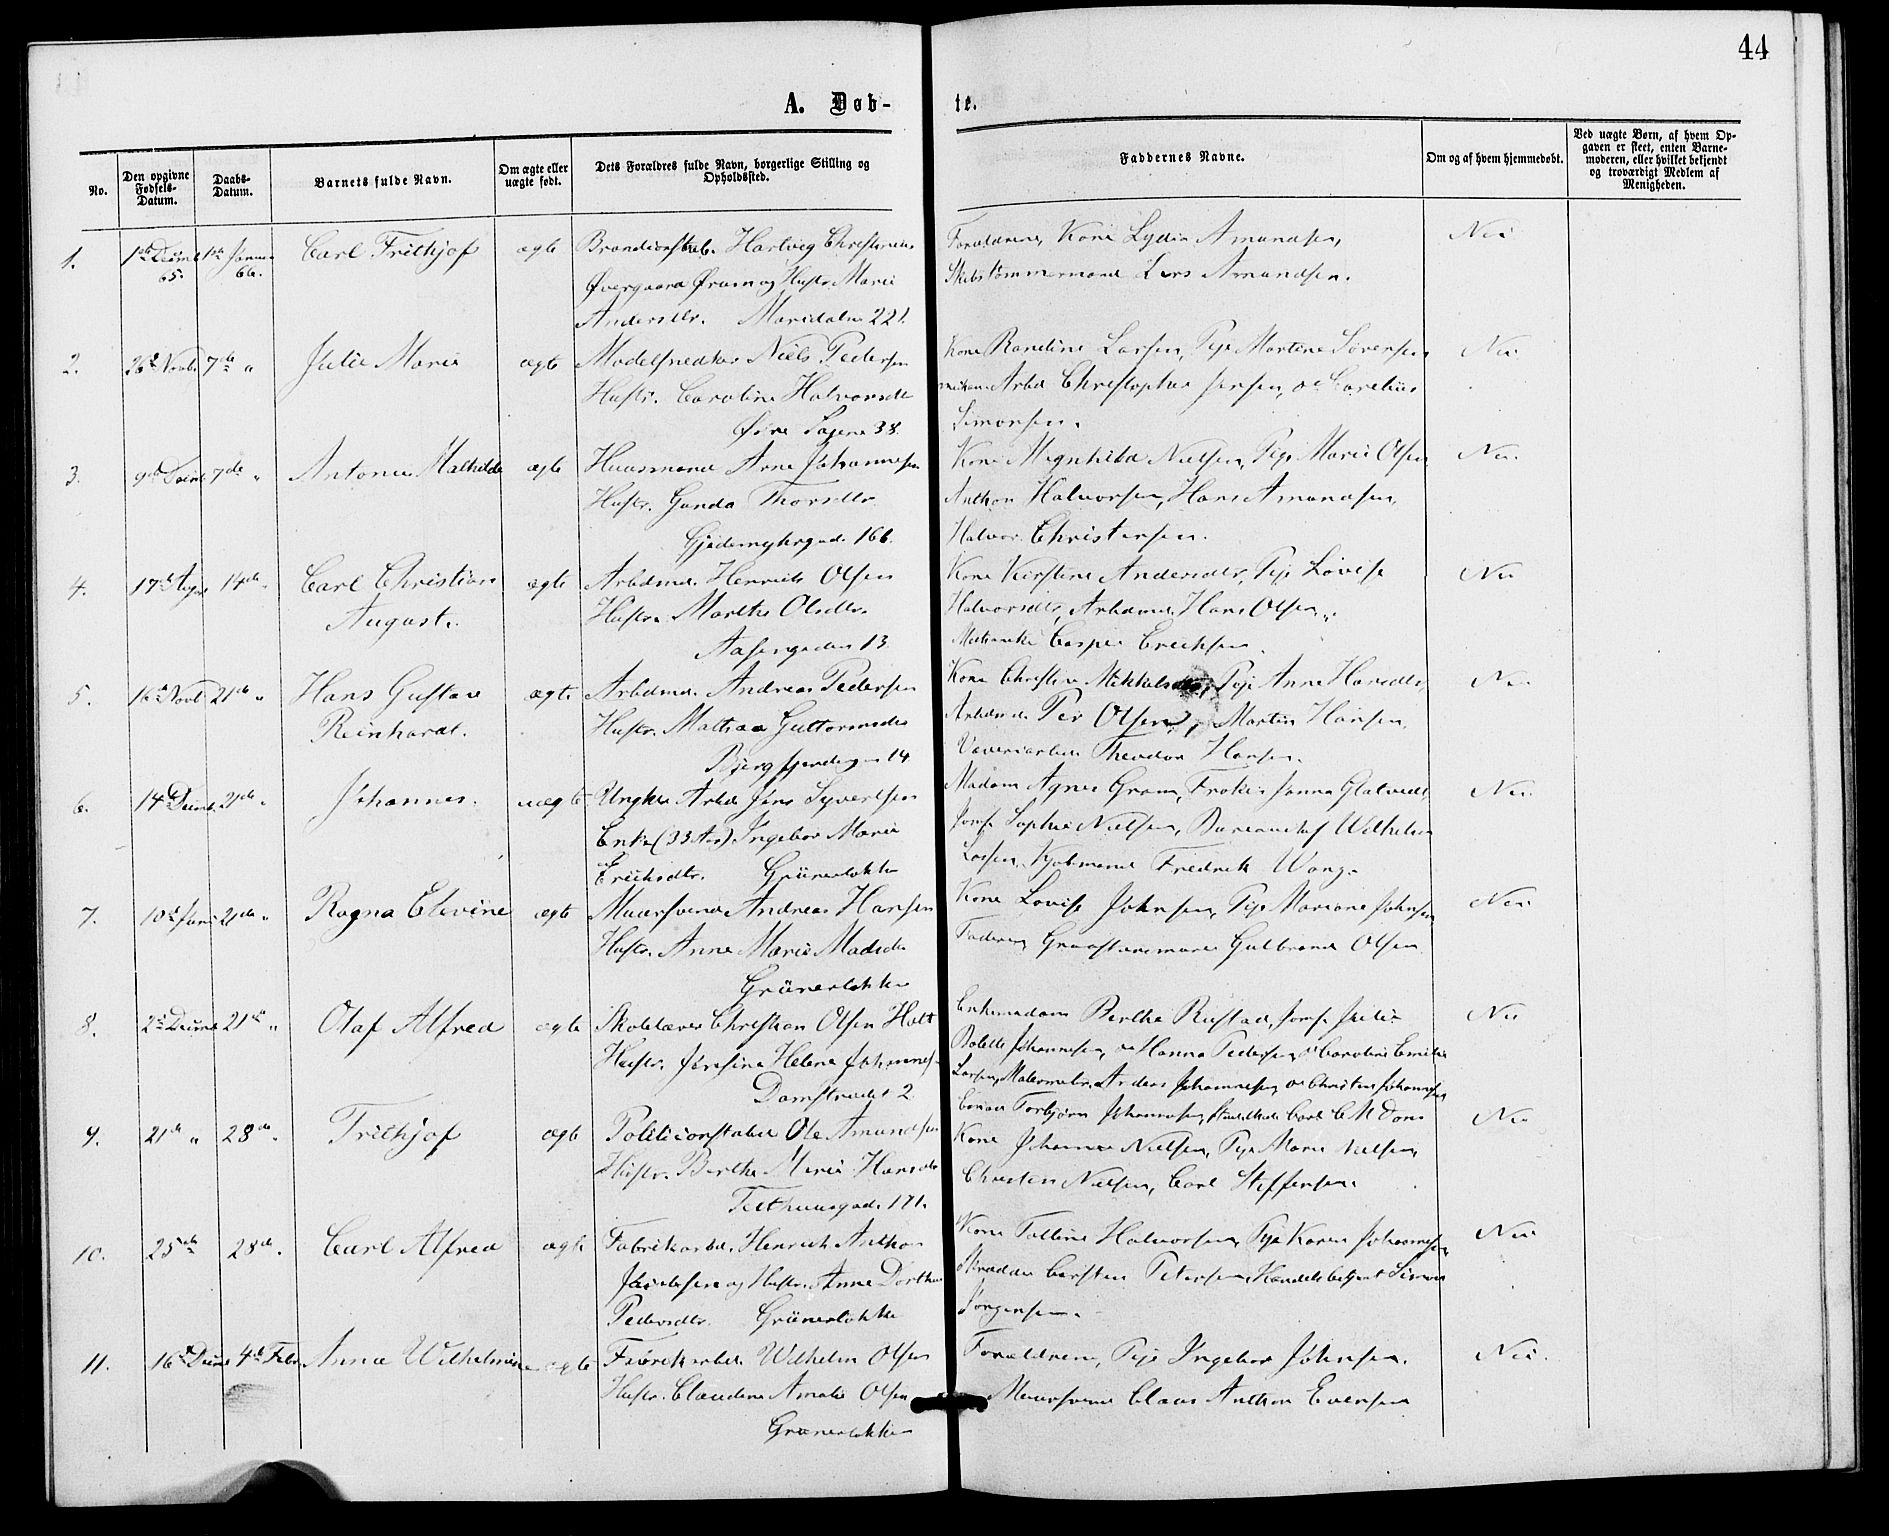 44
A. Døb-
te.
No.
Den opgivne Fødsels-Datum.
Daabs-Datum.
Barnets fulde Navn.
Om ægte eller uægte født.
Dets Forældres fulde Navn, borgerlige Stilling og Opholdssted.
Faddernes Navne.
Om og af hvem hjemmedøbt.
Ved uægte Børn, af hvem Opgaven er skeet, enten Barnemoderen, eller hvilket bekjendt og troværdigt Medlem af Menigheden.
1. 65. 66. Carl Frithjof ægte Hartvig
Øvergaard Ørum og Hustr. Marie
Andersdtr. Maridalen 221.
Forældrene, Kone Lydia Amundsen, Nei
Skibstømmermand Lars Amundsen.
2. 26de Novbr 7de " Julie Marie ægte Modelsnedker Niels Pedersen
Hustr. Caroline Halvorsdtr
Øvre Sagene 38.
Kone Randine Larsen, Pige Martene Sørensen Nei
Arbd Christopher Jensen, Carelius
Simonsen.
3. 9de 7de " Antonie Mathilde ægte Huusmand Arne Johannesen
Hustr. Gunda Thorsdtr.
Gjedemyhrgad. 166.
Kone Nielsen, Pige Marie Olsen Nei
Anthon Halvorsen, Hans Amundsen,
Halvor Christensen.
4. 17de 14de " Carl Christian ægte Arbdmd. Henrik Olsen
August. Hustr. Marthe Olsdtr.
13
Kone Kirstine Andersdtr, Pige Lovise Nei
Halvorsdtr, Arbdmd. Hans Olsen,
Casper Ericksen.
5. 16de Novb 21de " Hans Gustav ægte Arbdmd. Andreas Pedersen
Reinhardt. Hustr. Mathea Guttormsdtr
14
Kone Christine Mikkelsdtr, Pige Anne Hansdtr, Nei
Arbdmd. Per Olsen, Martin Hansen,
Theodor Hansen.
6. 14de 21de " Johannes. uægte Ungkar Arbd Jens Syvertsen
Enke (33 Aar) Ingebor Marie
Ericksdtr. Grünerløkken
Madam Agnes Gram, Frøken Nei
Jomf. Sophie Nielsen, Wilhelm
Larsen, Kjøbmand Fredrik Wang.
7. 10de 21de " Ragna Elevine ægte Muursvend Andreas Hansen
Hustr. Anne Marie Madsdtr
Grünerløkken
Kone Lovise Johnsen, Pige Mariane Johnsen, Nei
Faderen, Gulbrand Olsen
8. 2de 21de " Olaf Alfred ægte Skolelærer Christian Olsen Holt
Hustr. Josefine Helene Johannes-
Damstrædet 2.
Enkemadam Berthe Rustad, Jomf. Julie Nei
Bolette Johannesen, Hanna Pedersen, Caroline Emilie
Larsen, Johannesen, Christen Johannesen
Torbjørn Johannesen, Carl
9. 21de " 28de " Frithjof ægte Politiconstabel Ole Amundsen
Hustr. Berthe Marie Hansdtr
171.
Kone Johanne Nielsen, Pige Marie Nielsen, Nei
Christen Nielsen, Carl Steffensen.
10. 25de 28de " Carl Alfred ægte Fabrikarbd. Henrich Anthon
Jacobsen og Hustr. Anne Dorthea
Pedersdtr. Grünerløkken
Kone Halvorsen, Pige Karen Johannesen, Nei
Skrædder Carsten Petersen, Handelsbetjent Simon
Jørgensen.
11. 16de 4de Febr Anna Wilhelmine ægte Fabrikarbd. Wilhelm Olsen
Hustr. Claudine Amalie Olsen
Grünerløkken
Forældrene, Pige Ingebor Johnsen. Nei.
Muursvend Claus Anthon Evensen